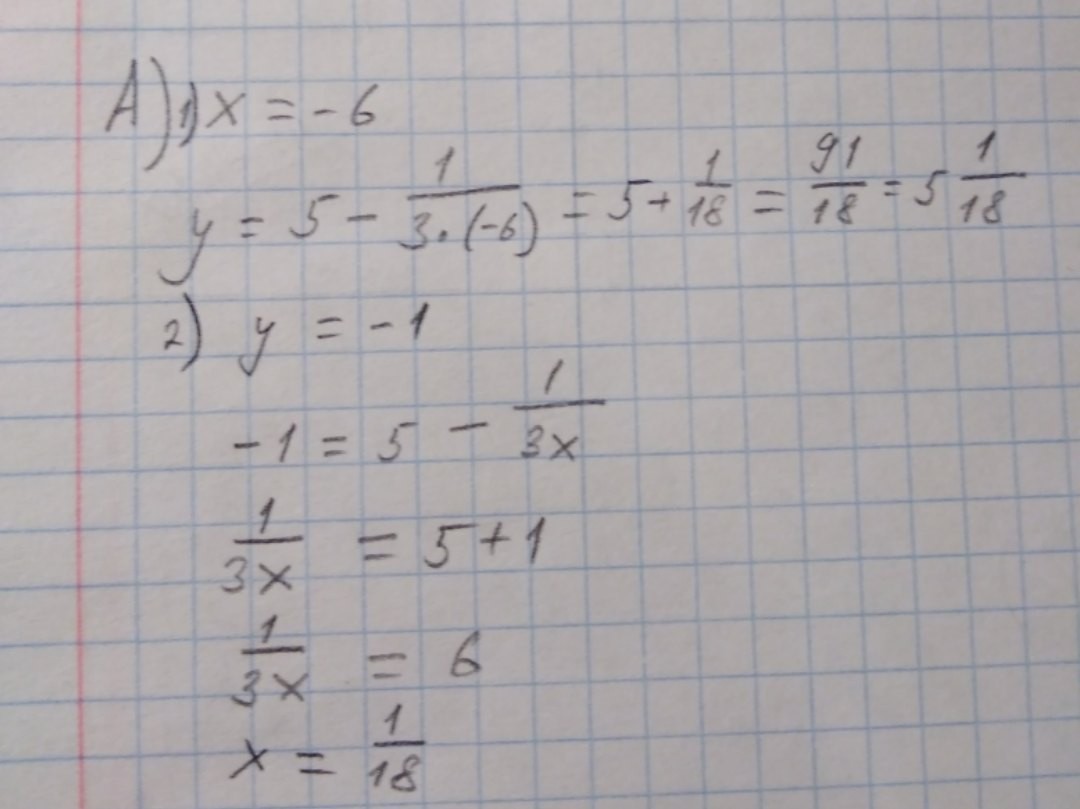 A) 1) x = -6
y = 5 - 1/(3·(-6)) = 5 + 1/18 = 91/18 = 5 1/18
2) y = -1
-1 = 5 - 1/3x
1/3x = 5+1
1/3x = 6
x = 1/18